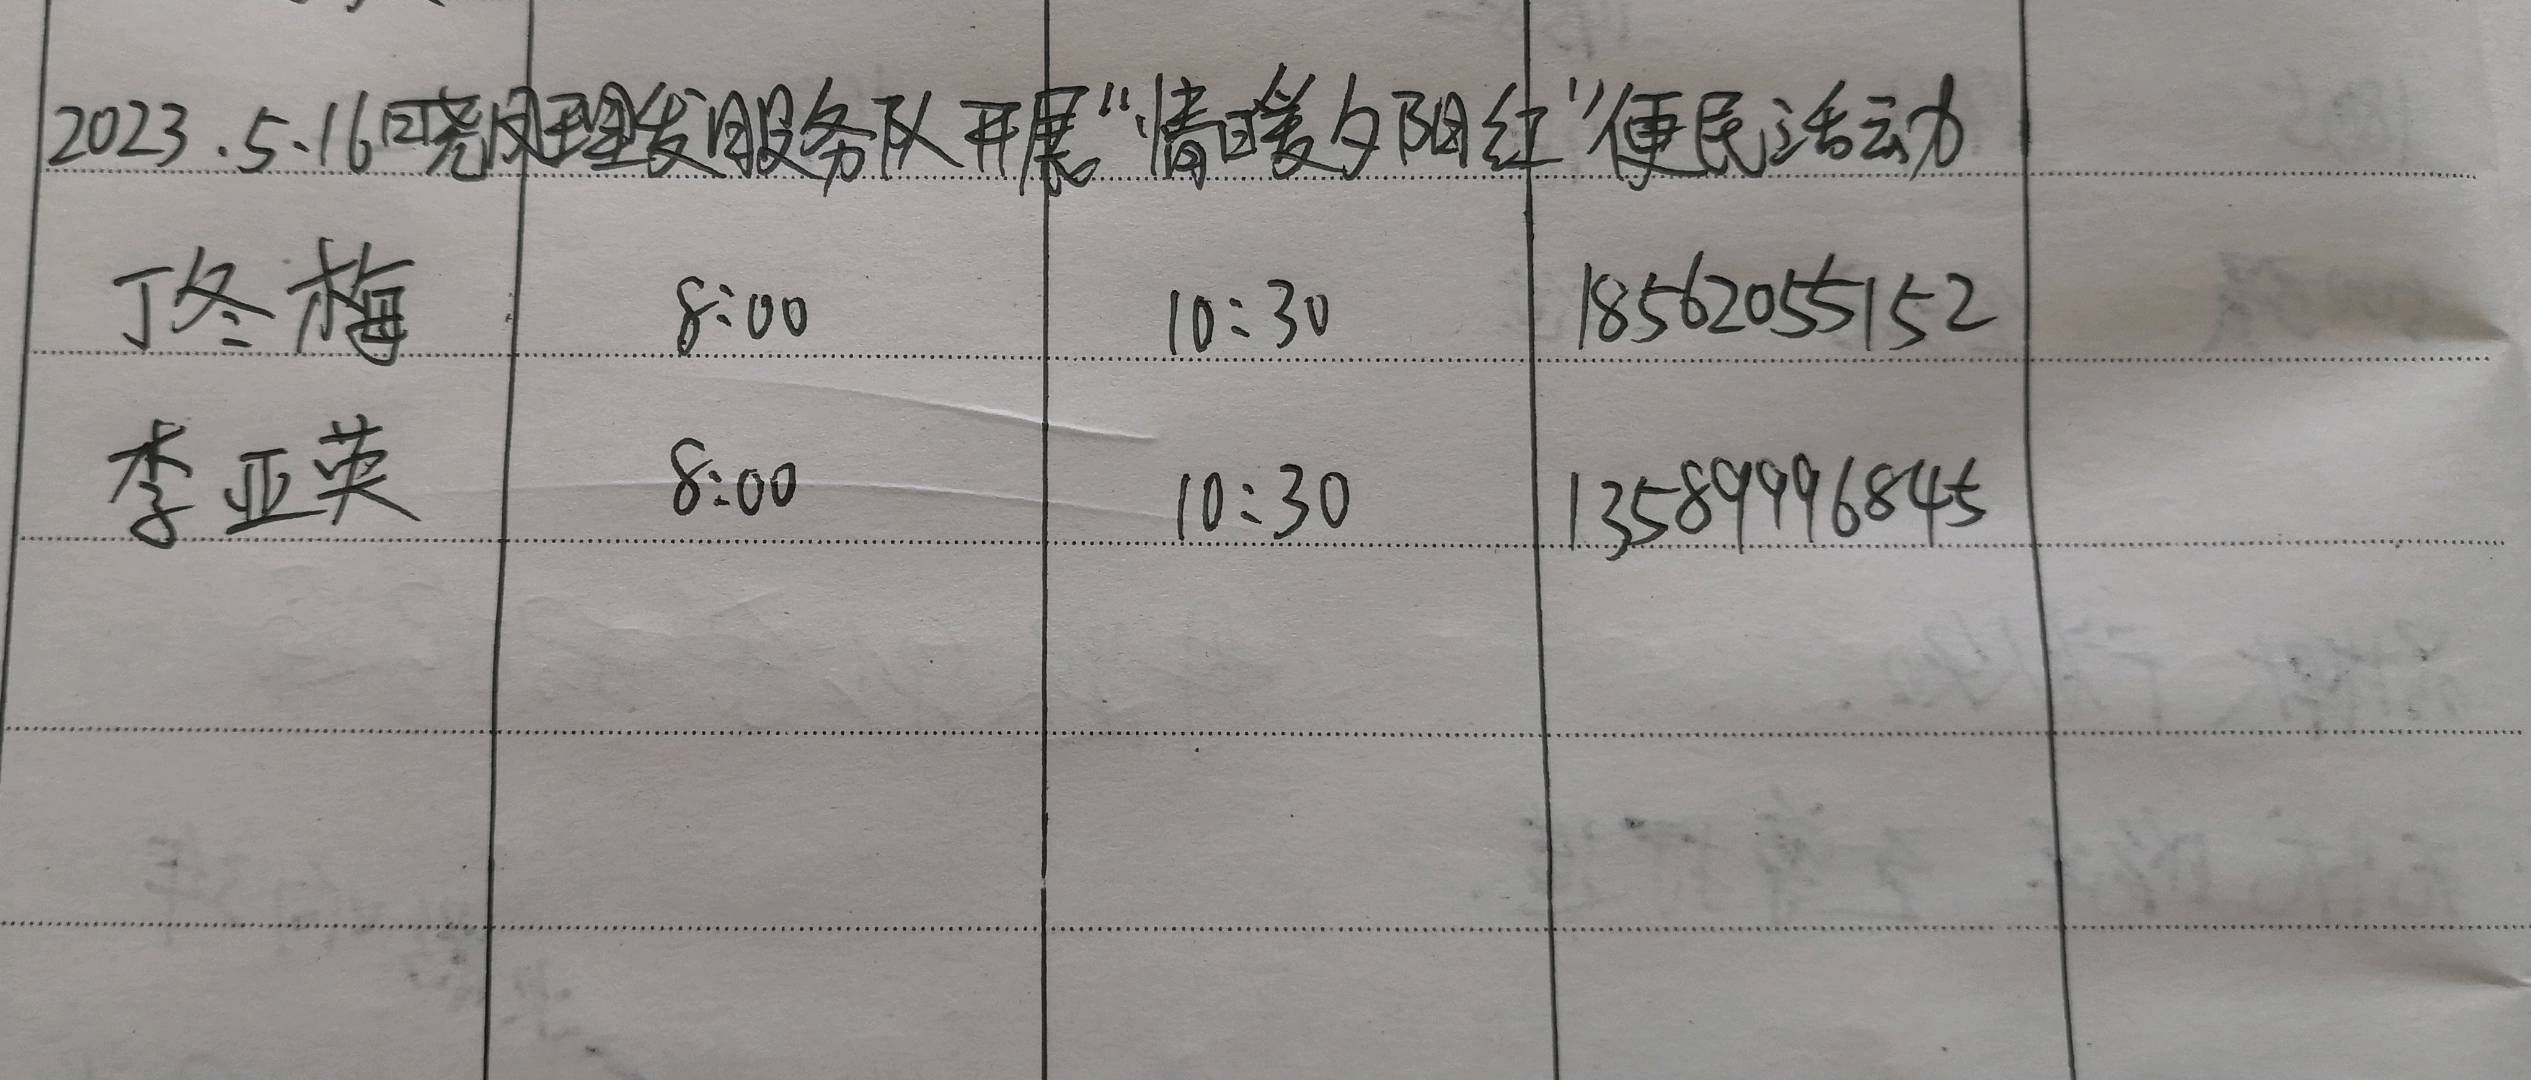 2023.5.16日晓凤理发服务队开展“情暖夕阳红”便民活动
丁冬梅 8:00 10:30 18562055152
李亚英 8:00 10:30 13589996845